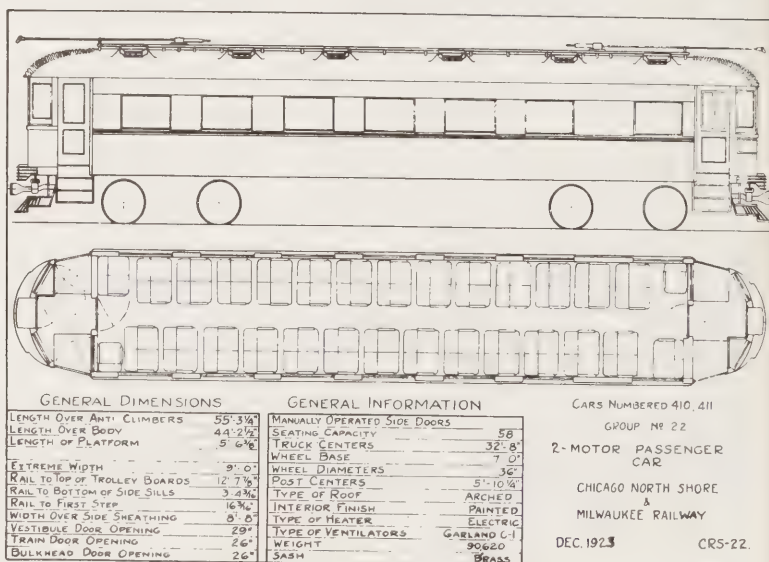 GENERAL DIMENSIONS
LENGTH OVER ANTI CLIMBERS 55'-3¼"
LENGTH OVER BODY 44'-2½"
LENGTH OF PLATFORM 5'6⅜"
EXTREME WIDTH 9'-0"
RAIL TO TOP OF TROLLEY BOARDS 12'7⅛"
RAIL TO BOTTOM OF SIDE SILLS 3-4³⁄₁₆"
RAIL TO FIRST STEP 16³⁄₁₆"
WIDTH OVER SIDE SHEATHING 8'-8"
VESTIBULE DOOR OPENING 29"
TRAIN DOOR OPENING 26"
BULKHEAD DOOR OPENING 26"
GENERAL INFORMATION
MANUALLY OPERATED SIDE DOORS
SEATING CAPACITY 58
TRUCK CENTERS 32'-8"
WHEEL BASE 7'0"
WHEEL DIAMETERS 36"
POST CENTERS 5'-10¼"
TYPE OF ROOF ARCHED
INTERIOR FINISH PAINTED
TYPE OF HEATER ELECTRIC
TYPE OF VENTILATORS GARLAND C-1
WEIGHT 90620
SASH BRASS
CARS NUMBERED 410, 411
GROUP Nº 22
2-MOTOR PASSENGER
CAR
CHICAGO NORTH SHORE
&
MILWAUKEE RAILWAY
DEC. 1923 CRS-22.